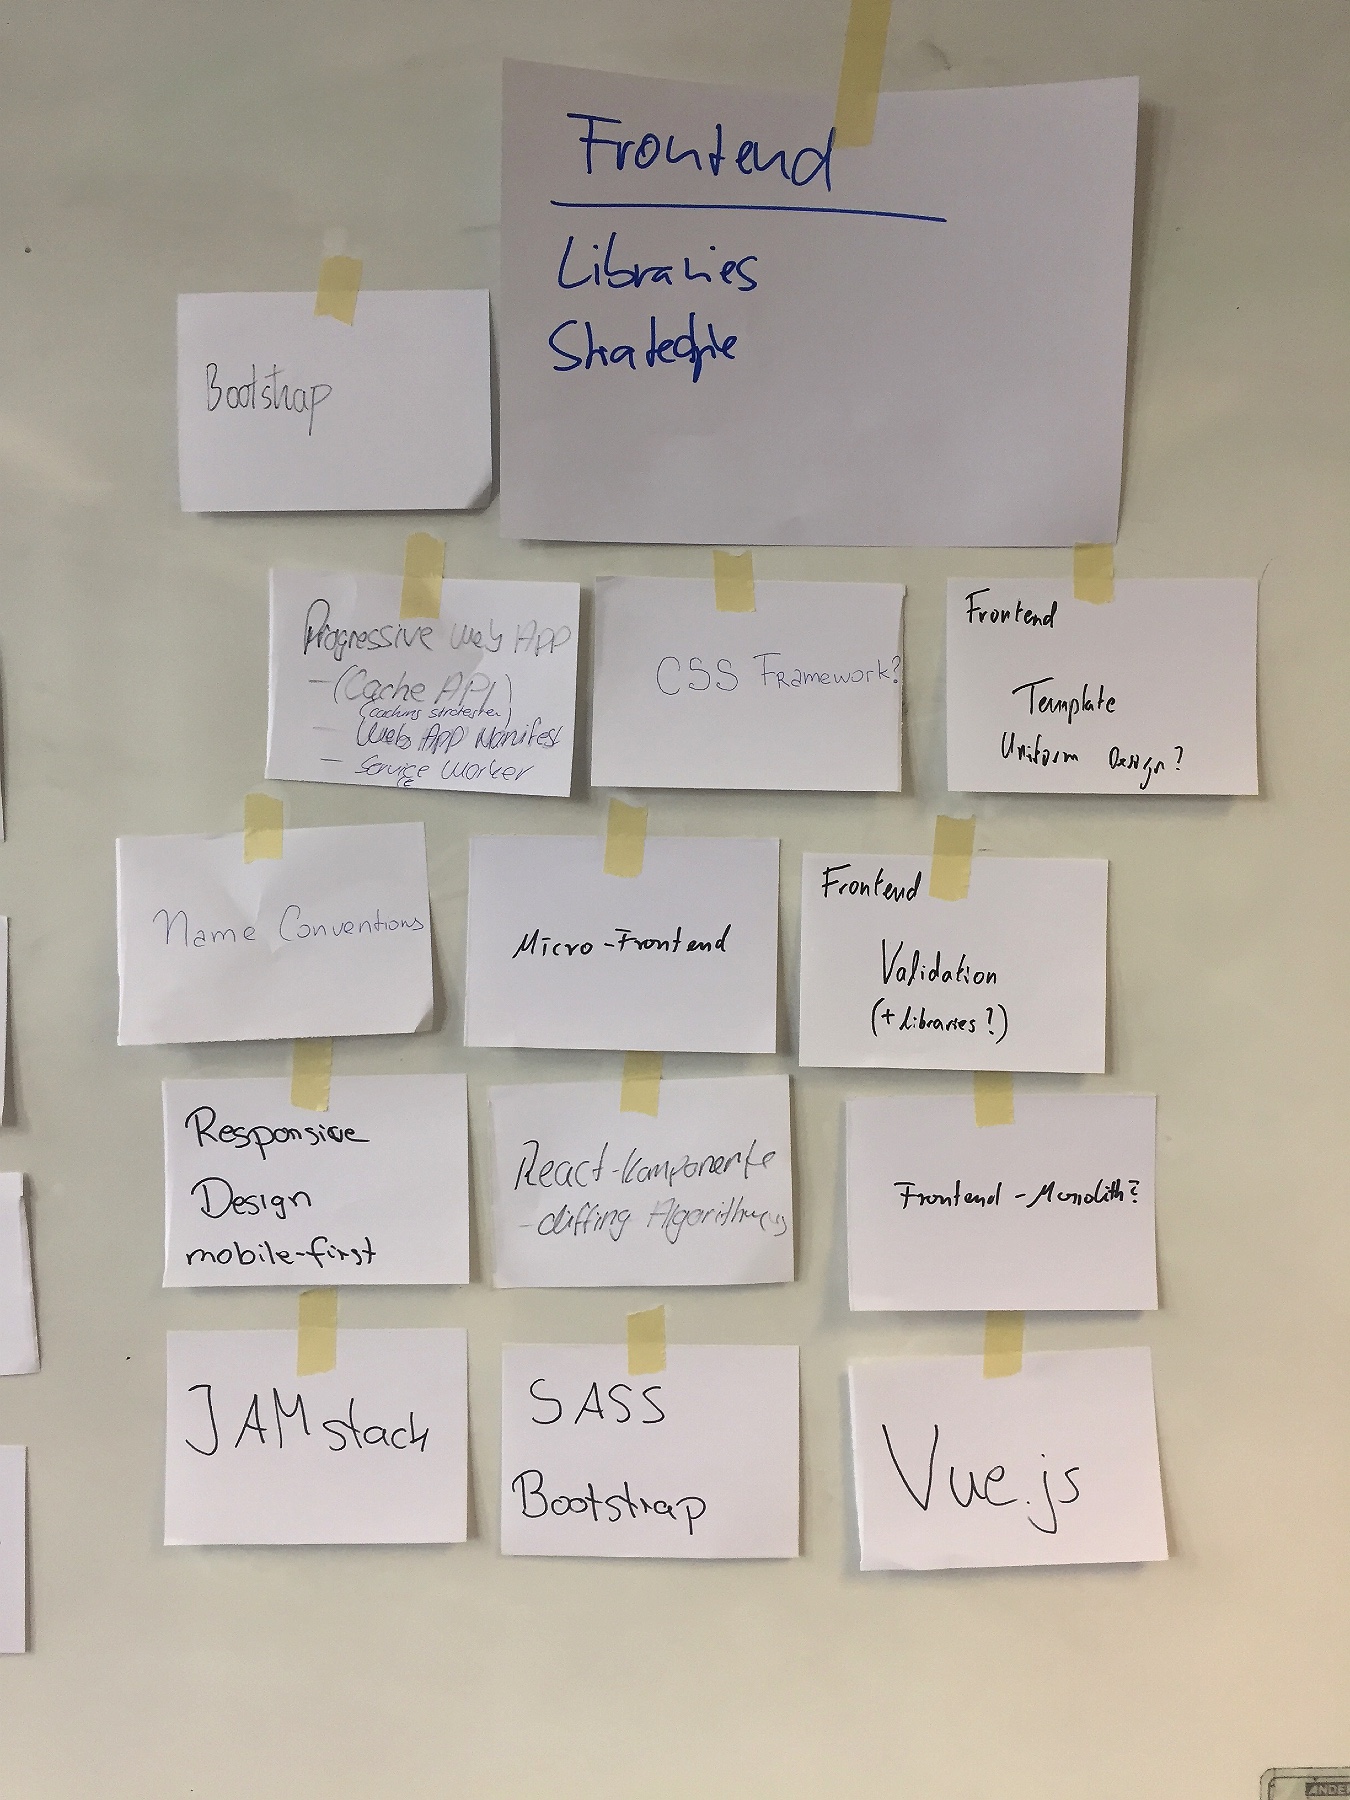 Frontend
Libraries
Strategie
Bootstrap
Progressive Web App
- (Cache API)
(caching strategien)
- Web App Manifest
- Service Worker
CSS Framework?
Frontend
Template
Uniform Design?
Name Conventions
Micro-Frontend
Frontend
Validation
(+ libraries?)
Responsive
Design
mobile-first
React-Komponente
- diffing Algorithmus
Frontend - Monolith?
JAMstack
SASS
Bootstrap
Vue.js